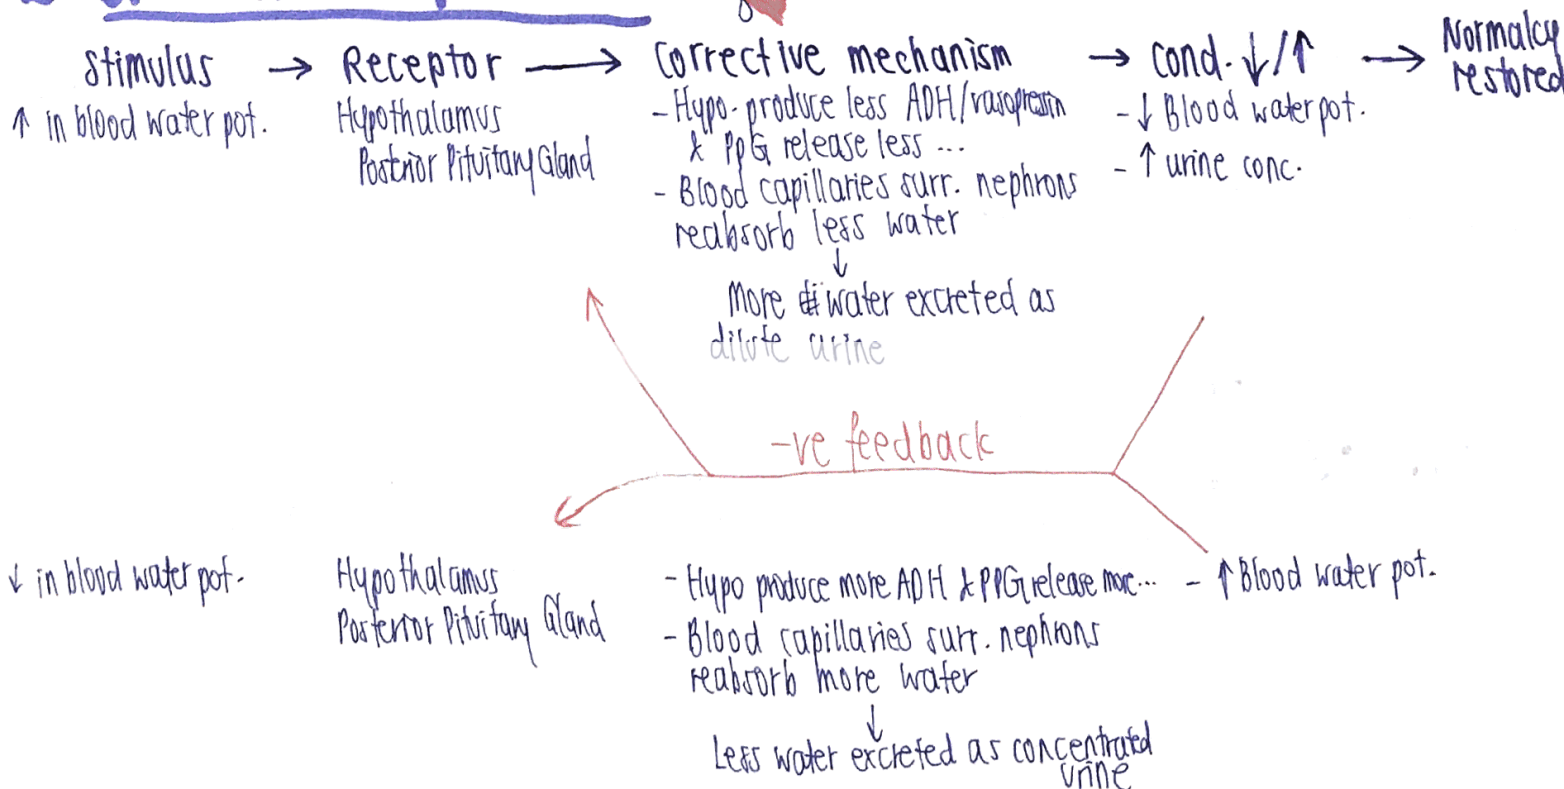 Stimulus → Receptor → Corrective mechanism → Cond. ↓/↑ → Normalcy restored
↑ in blood water pot.
Hypothalamus
Posterior Pituitary Gland
- Hypo. produce less ADH/vasopressin
& PPG release less ...
- Blood capillaries surr. nephrons
reabsorb less water
↓
More water excreted as
dilute urine
- ↓ Blood water pot.
- ↑ urine conc.
-ve feedback
↓ in blood water pot.
Hypothalamus
Posterior Pituitary Gland
- Hypo produce more ADH & PPG release more...
- Blood capillaries surr. nephrons
reabsorb more water
↓
Less water excreted as concentrated
urine
- ↑ Blood water pot.